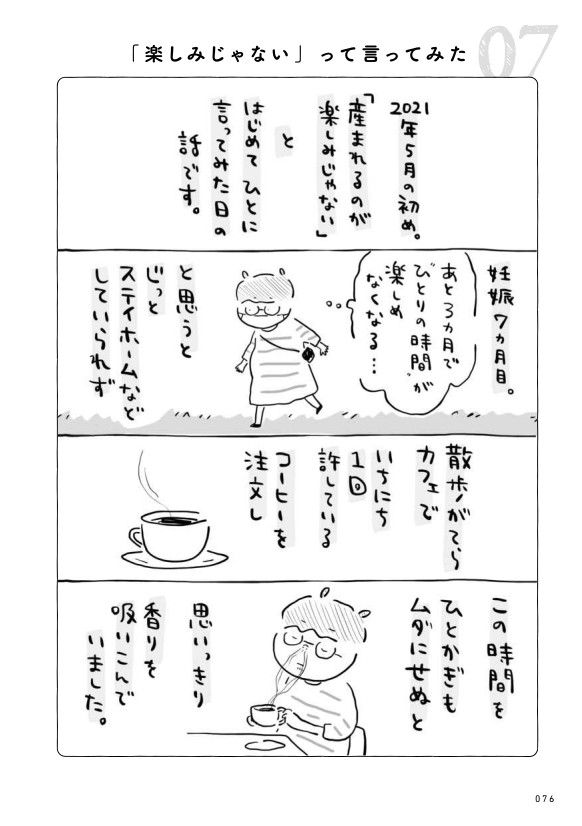 07
「楽しみじゃない」って言ってみた
2021年5月の初め。
「産まれるのが
楽しみじゃない」
と
はじめてひとに
言ってみた日の
話です。
妊娠7ヵ月目。
あと3ヵ月で
ひとりの時間が
楽しめ
なくなる…
と思うと
じっと
ステイホームなど
していられず
散歩がてら
カフェで
いちにち
1回
許している
コーヒーを
注文し
この時間を
ひとかぎも
ムダにせぬと
思いっきり
香りを
吸いこんで
いました。
076